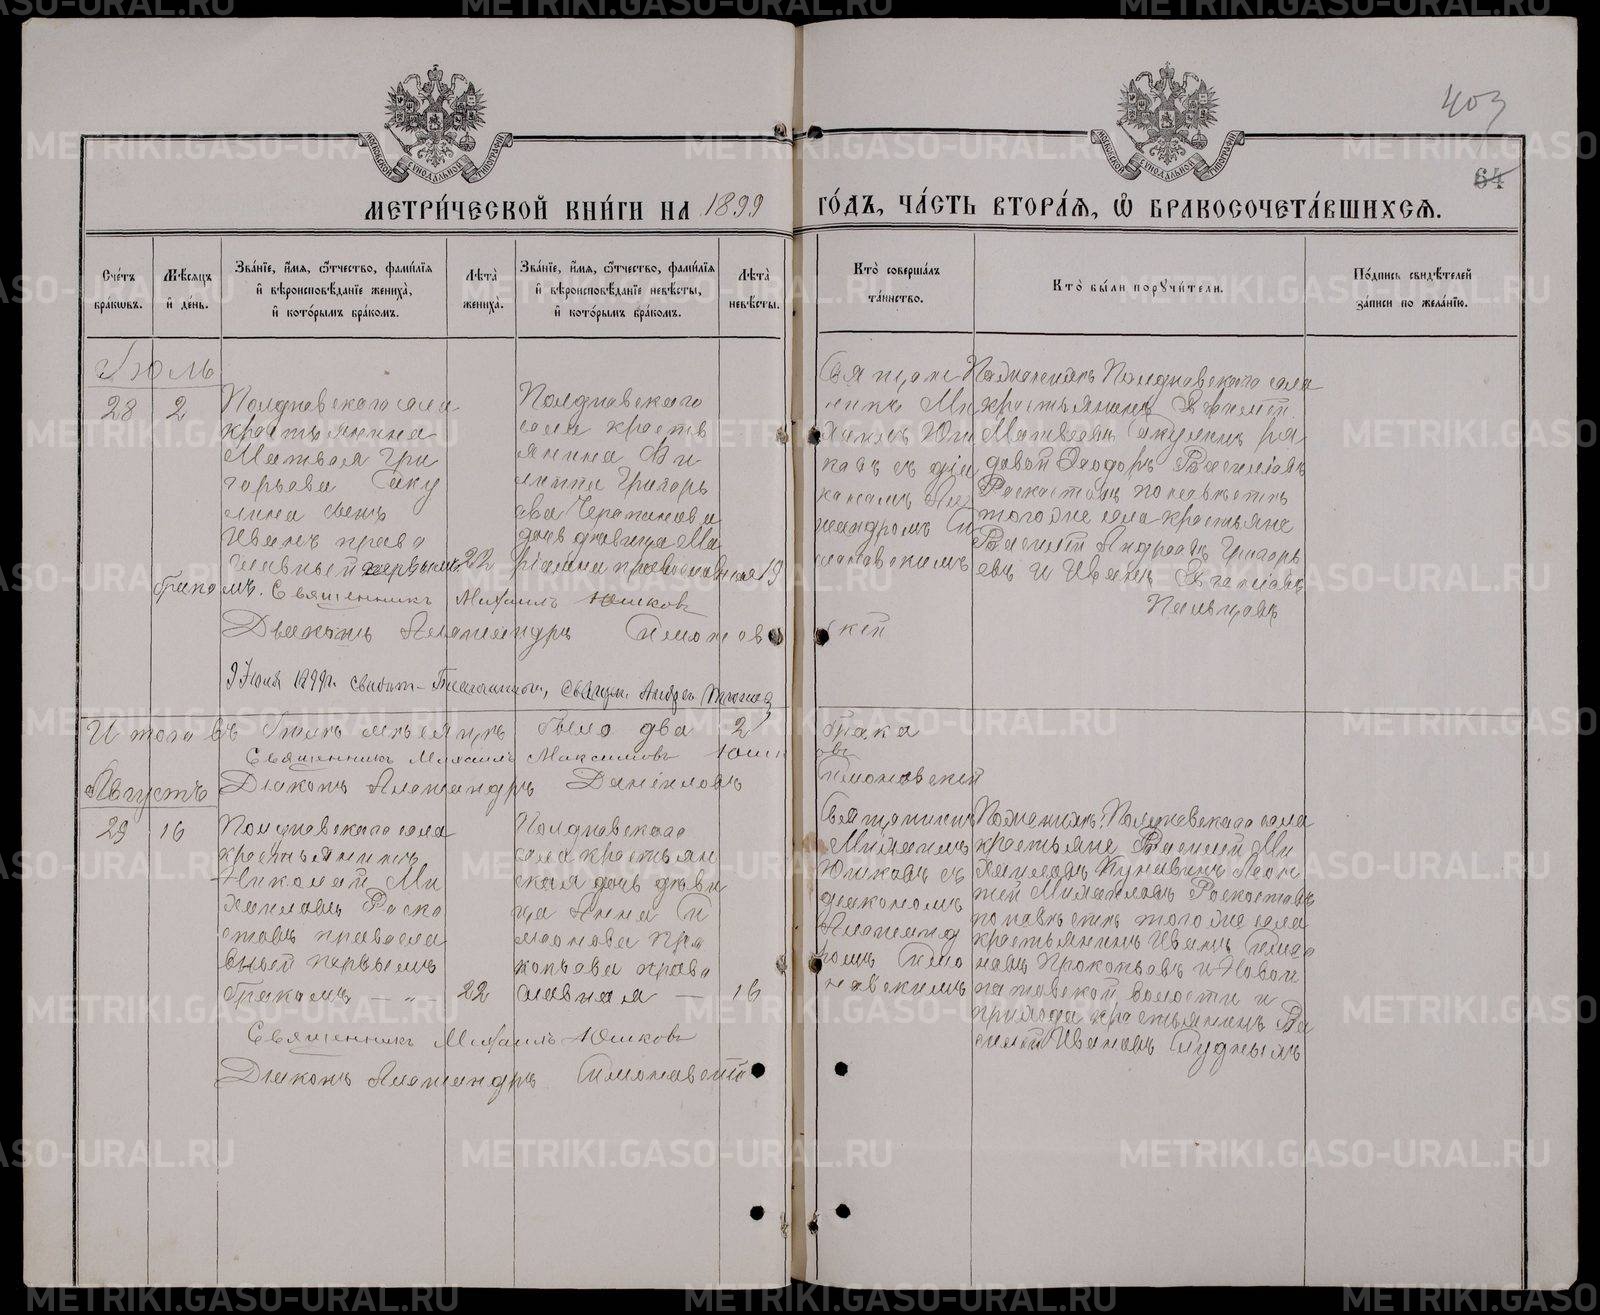 403
64
МОСКОВСКОЙ СѴНОДАЛЬНОЙ ТИПОГРАФІИ
МОСКОВСКОЙ СѴНОДАЛЬНОЙ ТИПОГРАФІИ
МЕТРИ́ЧЕСКОЙ КНИ́ГИ НА 1899 ГО́ДЪ, ЧА́СТЬ ВТОРА́Я, Ѽ БРАКОСОЧЕТА́ВШИХСЯ.
Сче́тъ бра́кѡвъ.
Мѣ́сяцъ и҆ де́нь.
Зва́нїе, и҆́мя, ѻ҆́тчество, фами́лїя и҆ вѣроисповѣ́данїе жениха̀, и҆ кото́рымъ бра́комъ.
Лѣ́та̀ жениха̀.
Зва́нїе, и҆́мя, ѻ҆́тчество, фами́лїя и҆ вѣроисповѣ́данїе невѣ́сты, и҆ кото́рымъ бра́комъ.
Лѣ́та̀ невѣ́сты.
Кто̀ соверша́лъ та́инство.
Кто̀ бы́ли порꙋчи́тели.
По́дпись свидѣ́телей за́писи по жела́нїю.
Іюль
28 2
Полдневского села
крестьянина
Матвея Гри
горьева Аку
лина сынъ
Иванъ право
славный первымъ 22
бракомъ.
Полдневскаго
села кресть
янина Фи
липпа Григорь
ева Черепанова
дочь девица Ма
рiамна православная 19
Священ
никъ Ми
хаилъ Юш
ковъ съ діа
кономъ Але
ксандромъ Си
моновскимъ
По женихѣ Полдневского села
крестьянинъ Ефимей
Матвеевъ Акулинъ ря
довой Феодоръ Василіевъ
Раскостовъ по невѣстѣ
того же села крестьяне
Василій Андреевъ Григорь
евъ и Иванъ Евгеніевъ
Пальцевъ
Священникъ Михаилъ Юшковъ
Діаконъ Александръ Симоновскій
9 Июля 1899 г. свидѣт. Священ. Андрей
Итого въ Іюлѣ мѣсяцѣ было два 2 брака
Священникъ Михаилъ Максимовъ Юшковъ
Діаконъ Александръ Даниловъ Симоновскій
Августъ
29 16
Полдневского села
крестьянинъ
Николай Ми
хаиловъ Раско
стовъ правосла
вный первымъ
бракомъ — „ 22
Полдневскаго
села крестьян
ская дочь деви
ца Анна Си
меонова Про
копьева право
славная — 16
Священникъ
Михаилъ
Юшковъ съ
діакономъ
Александ
ромъ Симо
новскимъ
По женихѣ: Полдневскаго села
крестьяне Василій Ми
хаиловъ Кунавинъ Леон
тій Михаиловъ Раскостовъ
по невѣстѣ того же села
крестьянинъ Иванъ Симео
новъ Прокопьевъ и Новои
патовской волости и
прихода крестьянинъ Ва
силій Ивановъ Студнымъ
Священникъ Михаилъ Юшковъ
Діаконъ Александръ Симоновскій
METRIKI.GASO-URAL.RU